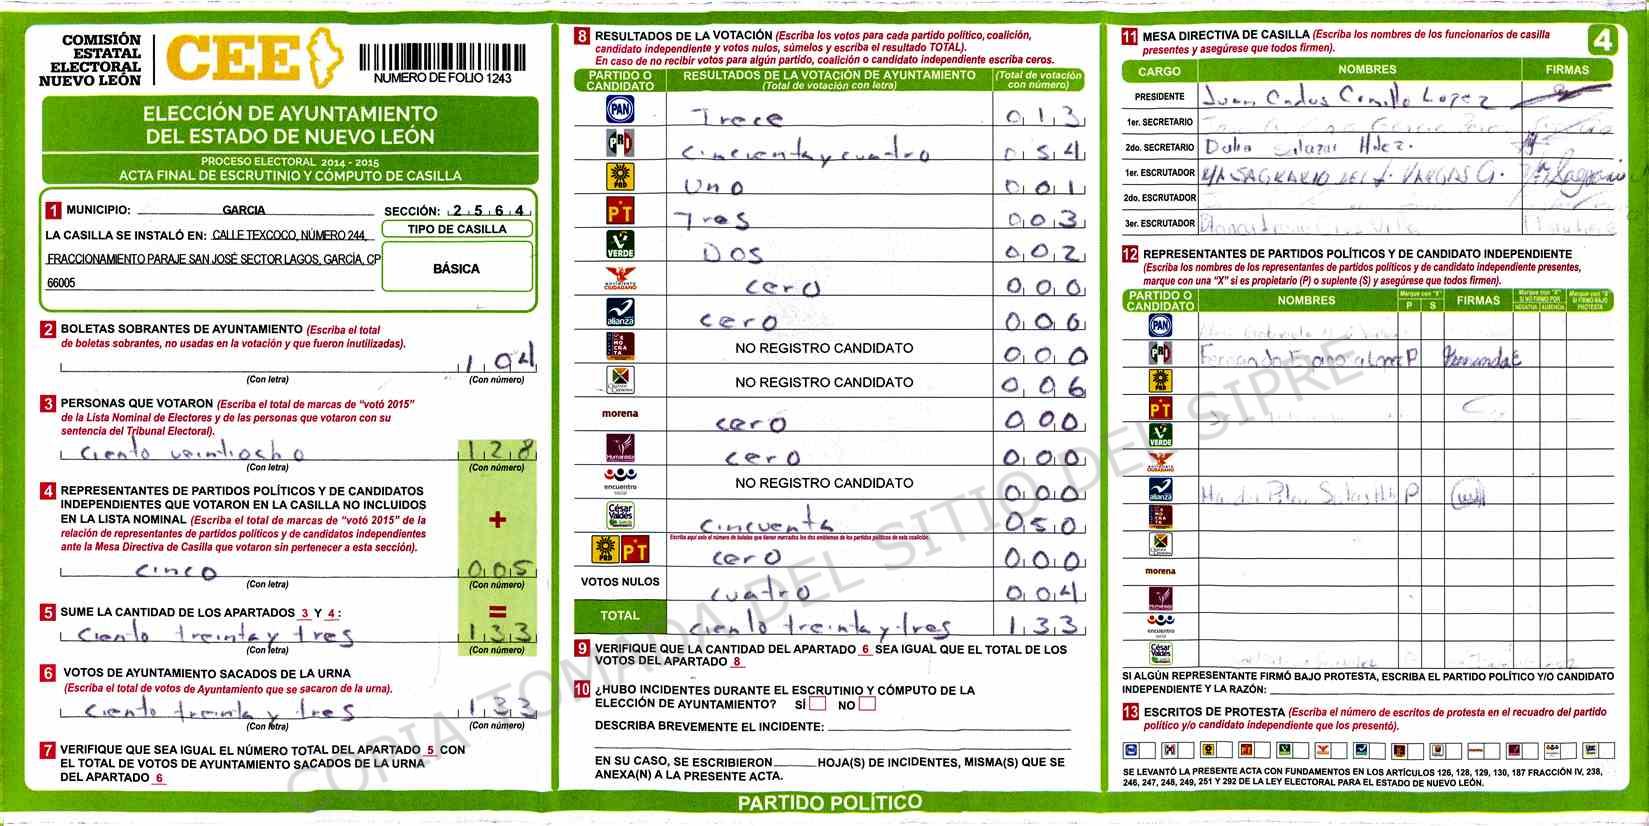 COMISIÓN
ESTATAL
ELECTORAL
NUEVO LEÓN
CEE
NUMERO DE FOLIO 1243
ELECCIÓN DE AYUNTAMIENTO
DEL ESTADO DE NUEVO LEÓN
PROCESO ELECTORAL 2014 - 2015
ACTA FINAL DE ESCRUTINIO Y CÓMPUTO DE CASILLA
1 MUNICIPIO: GARCIA SECCIÓN: 2 5 6 4
LA CASILLA SE INSTALÓ EN: CALLE TEXCOCO, NÚMERO 244,
FRACCIONAMIENTO PARAJE SAN JOSÉ SECTOR LAGOS, GARCÍA, CP
66005
TIPO DE CASILLA
BÁSICA
2 BOLETAS SOBRANTES DE AYUNTAMIENTO (Escriba el total
de boletas sobrantes, no usadas en la votación y que fueron inutilizadas).
1 9 4
(Con letra) (Con número)
3 PERSONAS QUE VOTARON (Escriba el total de marcas de “votó 2015”
de la Lista Nominal de Electores y de las personas que votaron con su
sentencia del Tribunal Electoral).
Ciento veintiocho 1 2 8
(Con letra) (Con número)
4 REPRESENTANTES DE PARTIDOS POLÍTICOS Y DE CANDIDATOS
INDEPENDIENTES QUE VOTARON EN LA CASILLA NO INCLUIDOS
EN LA LISTA NOMINAL (Escriba el total de marcas de “votó 2015” de la
relación de representantes de partidos políticos y de candidatos independientes
ante la Mesa Directiva de Casilla que votaron sin pertenecer a esta sección).
+
cinco 0 0 5
(Con letra) (Con número)
5 SUME LA CANTIDAD DE LOS APARTADOS 3 Y 4 : =
Ciento treinta y tres 1 3 3
(Con letra) (Con número)
6 VOTOS DE AYUNTAMIENTO SACADOS DE LA URNA
(Escriba el total de votos de Ayuntamiento que se sacaron de la urna).
Ciento treinta y tres 1 3 3
(Con letra) (Con número)
7 VERIFIQUE QUE SEA IGUAL EL NÚMERO TOTAL DEL APARTADO 5 CON
EL TOTAL DE VOTOS DE AYUNTAMIENTO SACADOS DE LA URNA
DEL APARTADO 6
8 RESULTADOS DE LA VOTACIÓN (Escriba los votos para cada partido político, coalición,
candidato independiente y votos nulos, súmelos y escriba el resultado TOTAL).
En caso de no recibir votos para algún partido, coalición o candidato independiente escriba ceros.
PARTIDO O CANDIDATO RESULTADOS DE LA VOTACIÓN DE AYUNTAMIENTO (Total de votación con letra) (Total de votación con número)
PAN Trece 0 1 3
PRD cincuenta y cuatro 0 5 4
PRD Uno 0 0 1
PT Tres 0 0 3
VERDE DOS 0 0 2
movimiento CIUDADANO cero 0 0 0
alianza cero 0 0 6
DEMOCRATA NO REGISTRO CANDIDATO 0 0 0
NO REGISTRO CANDIDATO 0 0 6
morena cero 0 0 0
Humanista cero 0 0 0
encuentro social NO REGISTRO CANDIDATO 0 0 0
César Valdés cincuenta 0 5 0
Escriba aquí solo el número de boletas que tienen marcados los dos emblemas de los partidos políticos de esta coalición.
PRD PT cero 0 0 0
VOTOS NULOS cuatro 0 0 4
TOTAL ciento treinta y tres 1 3 3
9 VERIFIQUE QUE LA CANTIDAD DEL APARTADO 6 SEA IGUAL QUE EL TOTAL DE LOS
VOTOS DEL APARTADO 8
10 ¿HUBO INCIDENTES DURANTE EL ESCRUTINIO Y CÓMPUTO DE LA
ELECCIÓN DE AYUNTAMIENTO? SÍ NO
DESCRIBA BREVEMENTE EL INCIDENTE:
EN SU CASO, SE ESCRIBIERON HOJA(S) DE INCIDENTES, MISMA(S) QUE SE
ANEXA(N) A LA PRESENTE ACTA.
PARTIDO POLÍTICO
11 MESA DIRECTIVA DE CASILLA (Escriba los nombres de los funcionarios de casilla
presentes y asegúrese que todos firmen).
4
CARGO NOMBRES FIRMAS
PRESIDENTE Juan Carlos Camillo Lopez
1er. SECRETARIO
2do. SECRETARIO Dalia Salazar Hdez.
1er. ESCRUTADOR MA SAGRARIO DEL J. VARGAS G.
2do. ESCRUTADOR
3er. ESCRUTADOR
12 REPRESENTANTES DE PARTIDOS POLÍTICOS Y DE CANDIDATO INDEPENDIENTE
(Escriba los nombres de los representantes de partidos políticos y de candidato independiente presentes,
marque con una “X” si es propietario (P) o suplente (S) y asegúrese que todos firmen).
PARTIDO O CANDIDATO NOMBRES Marque con "X" P S FIRMAS Marque con "X" SI NO FIRMÓ POR NEGATIVA AUSENCIA Marque con "X" SI FIRMÓ BAJO PROTESTA
PAN
PRD P
PRD
PT
VERDE
CIUDADANO
alianza P
morena
Humanista
encuentro social
César Valdés
SI ALGÚN REPRESENTANTE FIRMÓ BAJO PROTESTA, ESCRIBA EL PARTIDO POLÍTICO Y/O CANDIDATO
INDEPENDIENTE Y LA RAZÓN:
13 ESCRITOS DE PROTESTA (Escriba el número de escritos de protesta en el recuadro del partido
político y/o candidato independiente que los presentó).
SE LEVANTÓ LA PRESENTE ACTA CON FUNDAMENTOS EN LOS ARTÍCULOS 126, 128, 129, 130, 187 FRACCIÓN IV, 238,
246, 247, 248, 249, 251 Y 292 DE LA LEY ELECTORAL PARA EL ESTADO DE NUEVO LEÓN.
COPIA TOMADA DEL SITIO DEL SIPRE